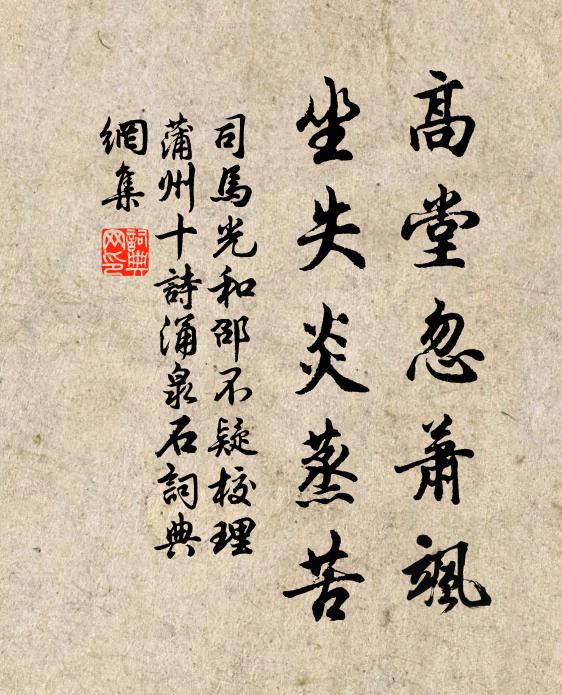 高堂忽蕭颯
坐失炎蒸苦
司馬光和邵不疑校理
蒲州十詩涌泉石詞典
網集
詞典
网印